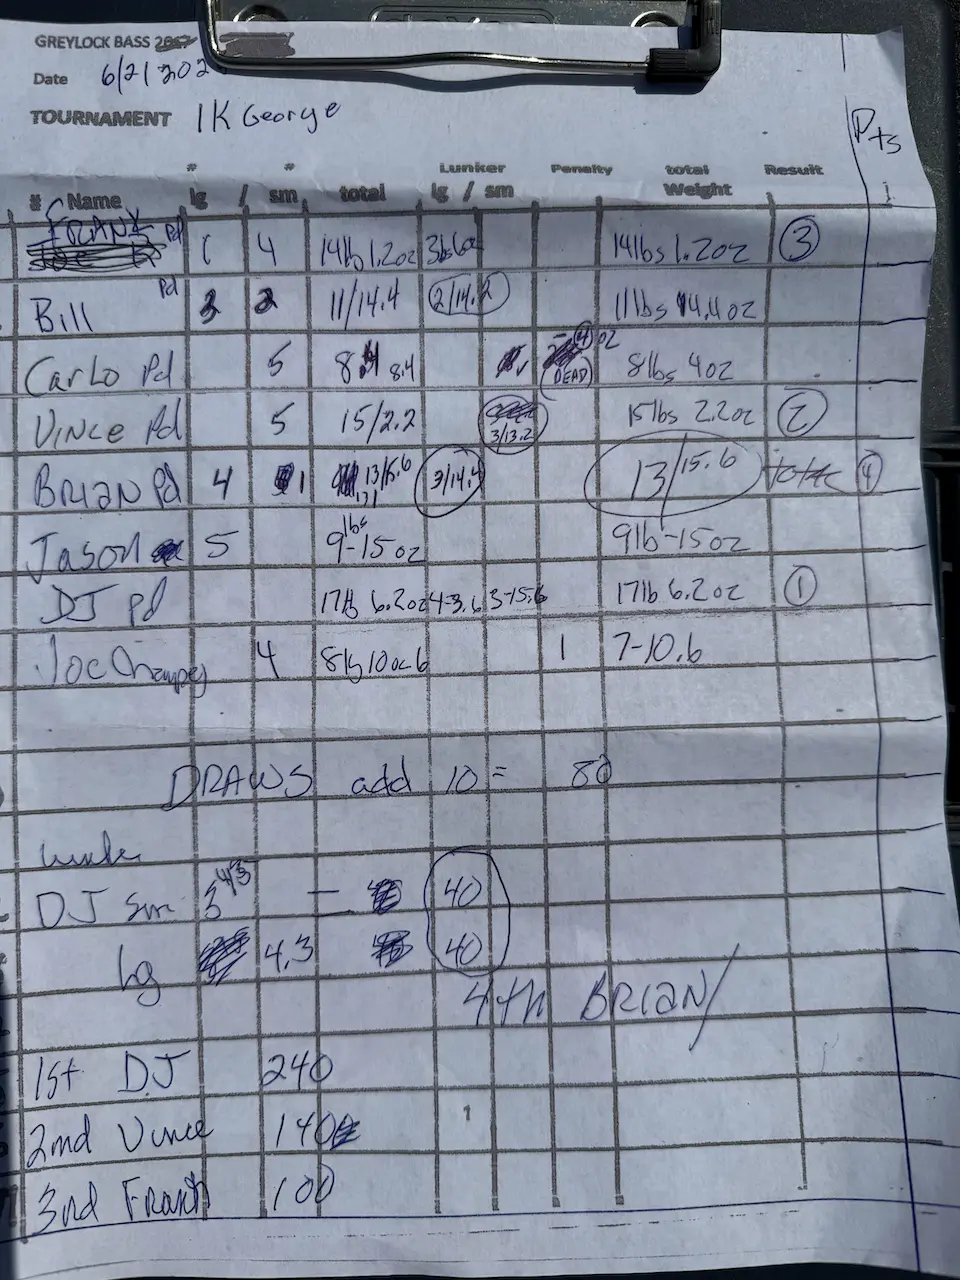 GREYLOCK BASS
Date 6/21/202
TOURNAMENT 1K George
Pts
# # Lunker Penalty total Result
# Name lg / sm total lg / sm Weight
FRANK Pd 1 4 14lb 1.2oz 3lbs6oz 14lbs 1.2oz 3
Bill Pd 3 2 11/14.4 2/14.2 11lbs 14.4oz
CarLo Pd 5 8.4 8.4 4 oz (DEAD) 8lbs 4oz
VINCE Pd 5 15/2.2 3/13.2 15lbs 2.2oz 2
BRIAN Pd 4 1 13/15.6 3/14.4 13/15.6 4
Jason 5 9lbs-15oz 9lb-15oz
DJ pd 17lb 6.2oz 4-3.6 3-15.6 17lb 6.2oz 1
Joe 4 8lb 10oz 6 1 7-10.6
DRAWS add 10 = 80
DJ sm 40
lg 4.3 40
4th BRIAN/
1st DJ 240
2nd Vince 140
3rd Frank 100